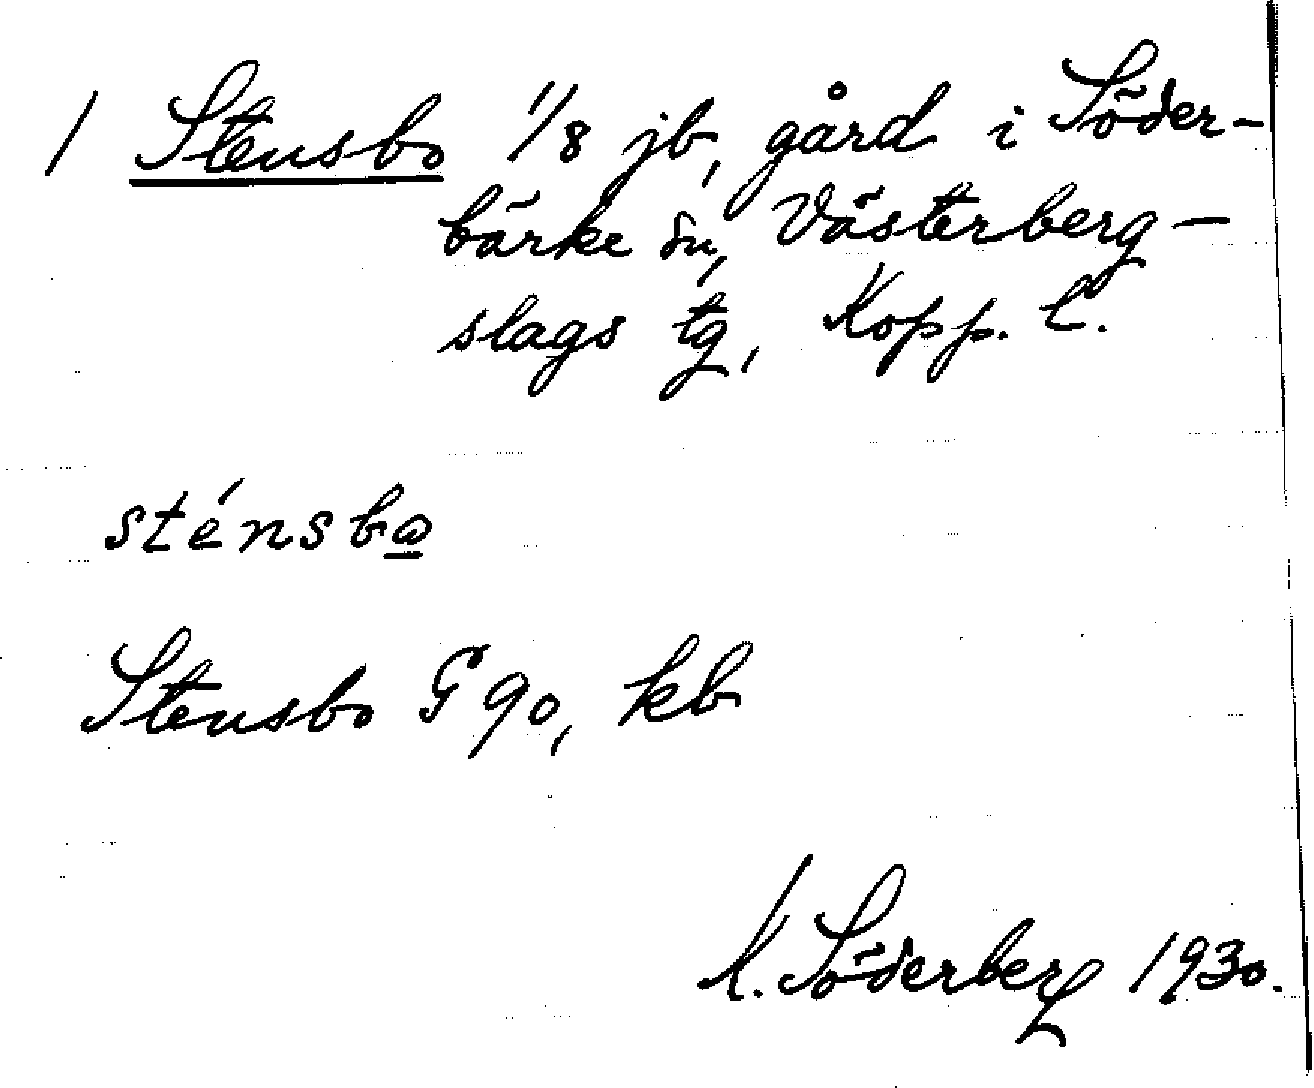 1 Stensbo 1/8 jb, gård i Söder-
bärke sn, Västerberg-
slags tg, Kopp. l.
sténsbω
Stensbo G 90, kb
K. Söderberg 1930.